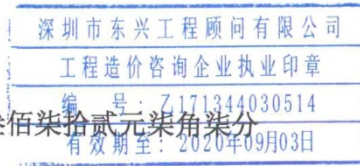 深圳市东兴工程顾问有限公司
工程造价咨询企业执业印章
编号:Z171344030514
佰柒拾贰元柒角柒分
有效期至:2020年09月03日